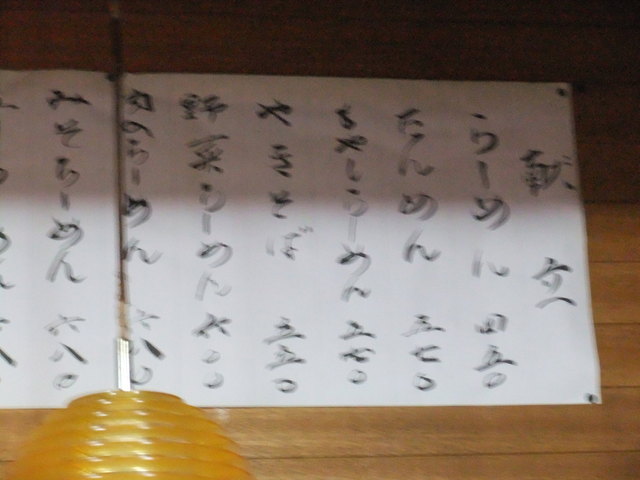 献立
らーめん 四五〇
たんめん 五七〇
もやしらーめん 五七〇
やきそば 五五〇
野菜らーめん 六〇〇
らーめん 六八〇
みそらーめん 六八〇